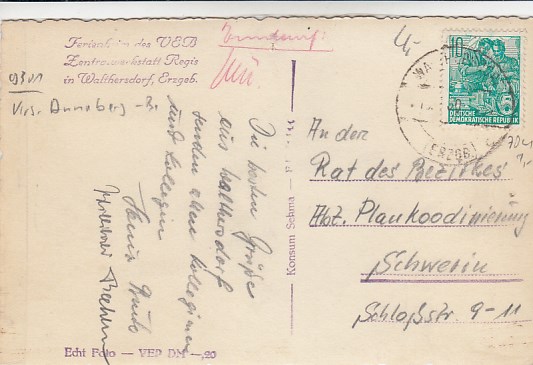 Ferienheim des VEB
Zentralwerkstatt Regis
in Walthersdorf, Erzgeb.
9301
Krs. Annaberg - B.
Die besten Grüße
aus Walthersdorf
senden allen Kolleginnen
und Kollegen
Konsum Sehma
10
DEUTSCHE
DEMOKRATISCHE REPUBLIK
5
(ERZGEB.)
An den
Rat des Bezirkes
Abt. Plankoodinierung
Schwerin
Schloßstr. 9-11
Echt Foto — VEP DM —,20